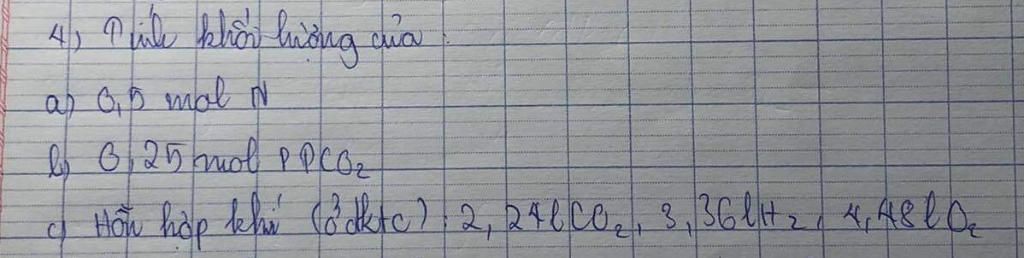 4) Tính khối lượng của :
a) 0,5 mol N
b) 0,25 mol PTCO₂
c) Hỗn hợp khí (ở đktc) : 2,24lCO₂, 3,36lH₂, 4,48lO₂